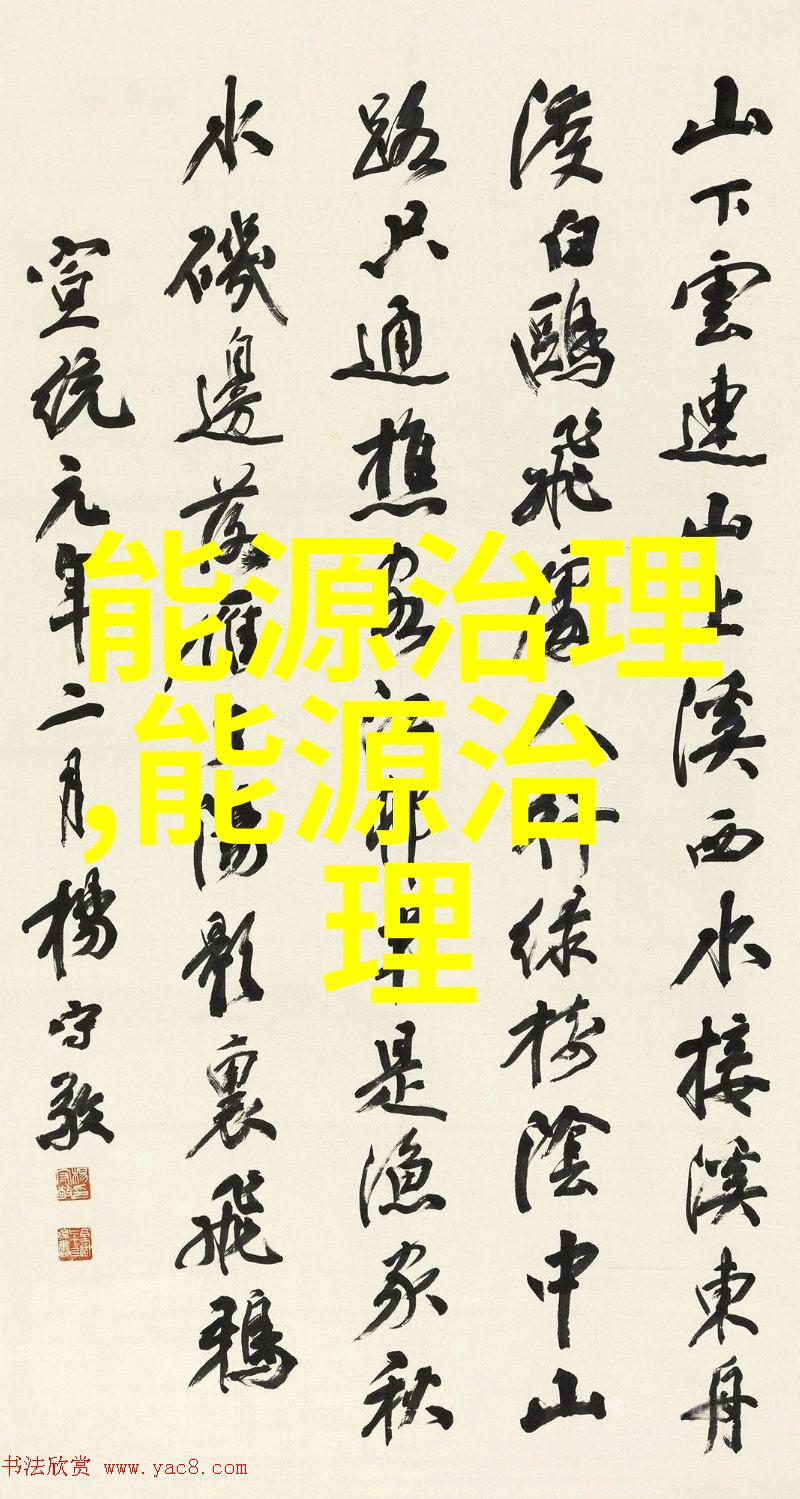 山下雲連山上溪西水接溪東舟
渡白鷗飛處人行綠樹陰中山
路只通樵客江邨半是漁家秋
水磯邊落雁夕陽影裏飛鴉
宣統元年二月楊守敬
能源治理
,能源治
理
书法欣赏 www.yac8.com